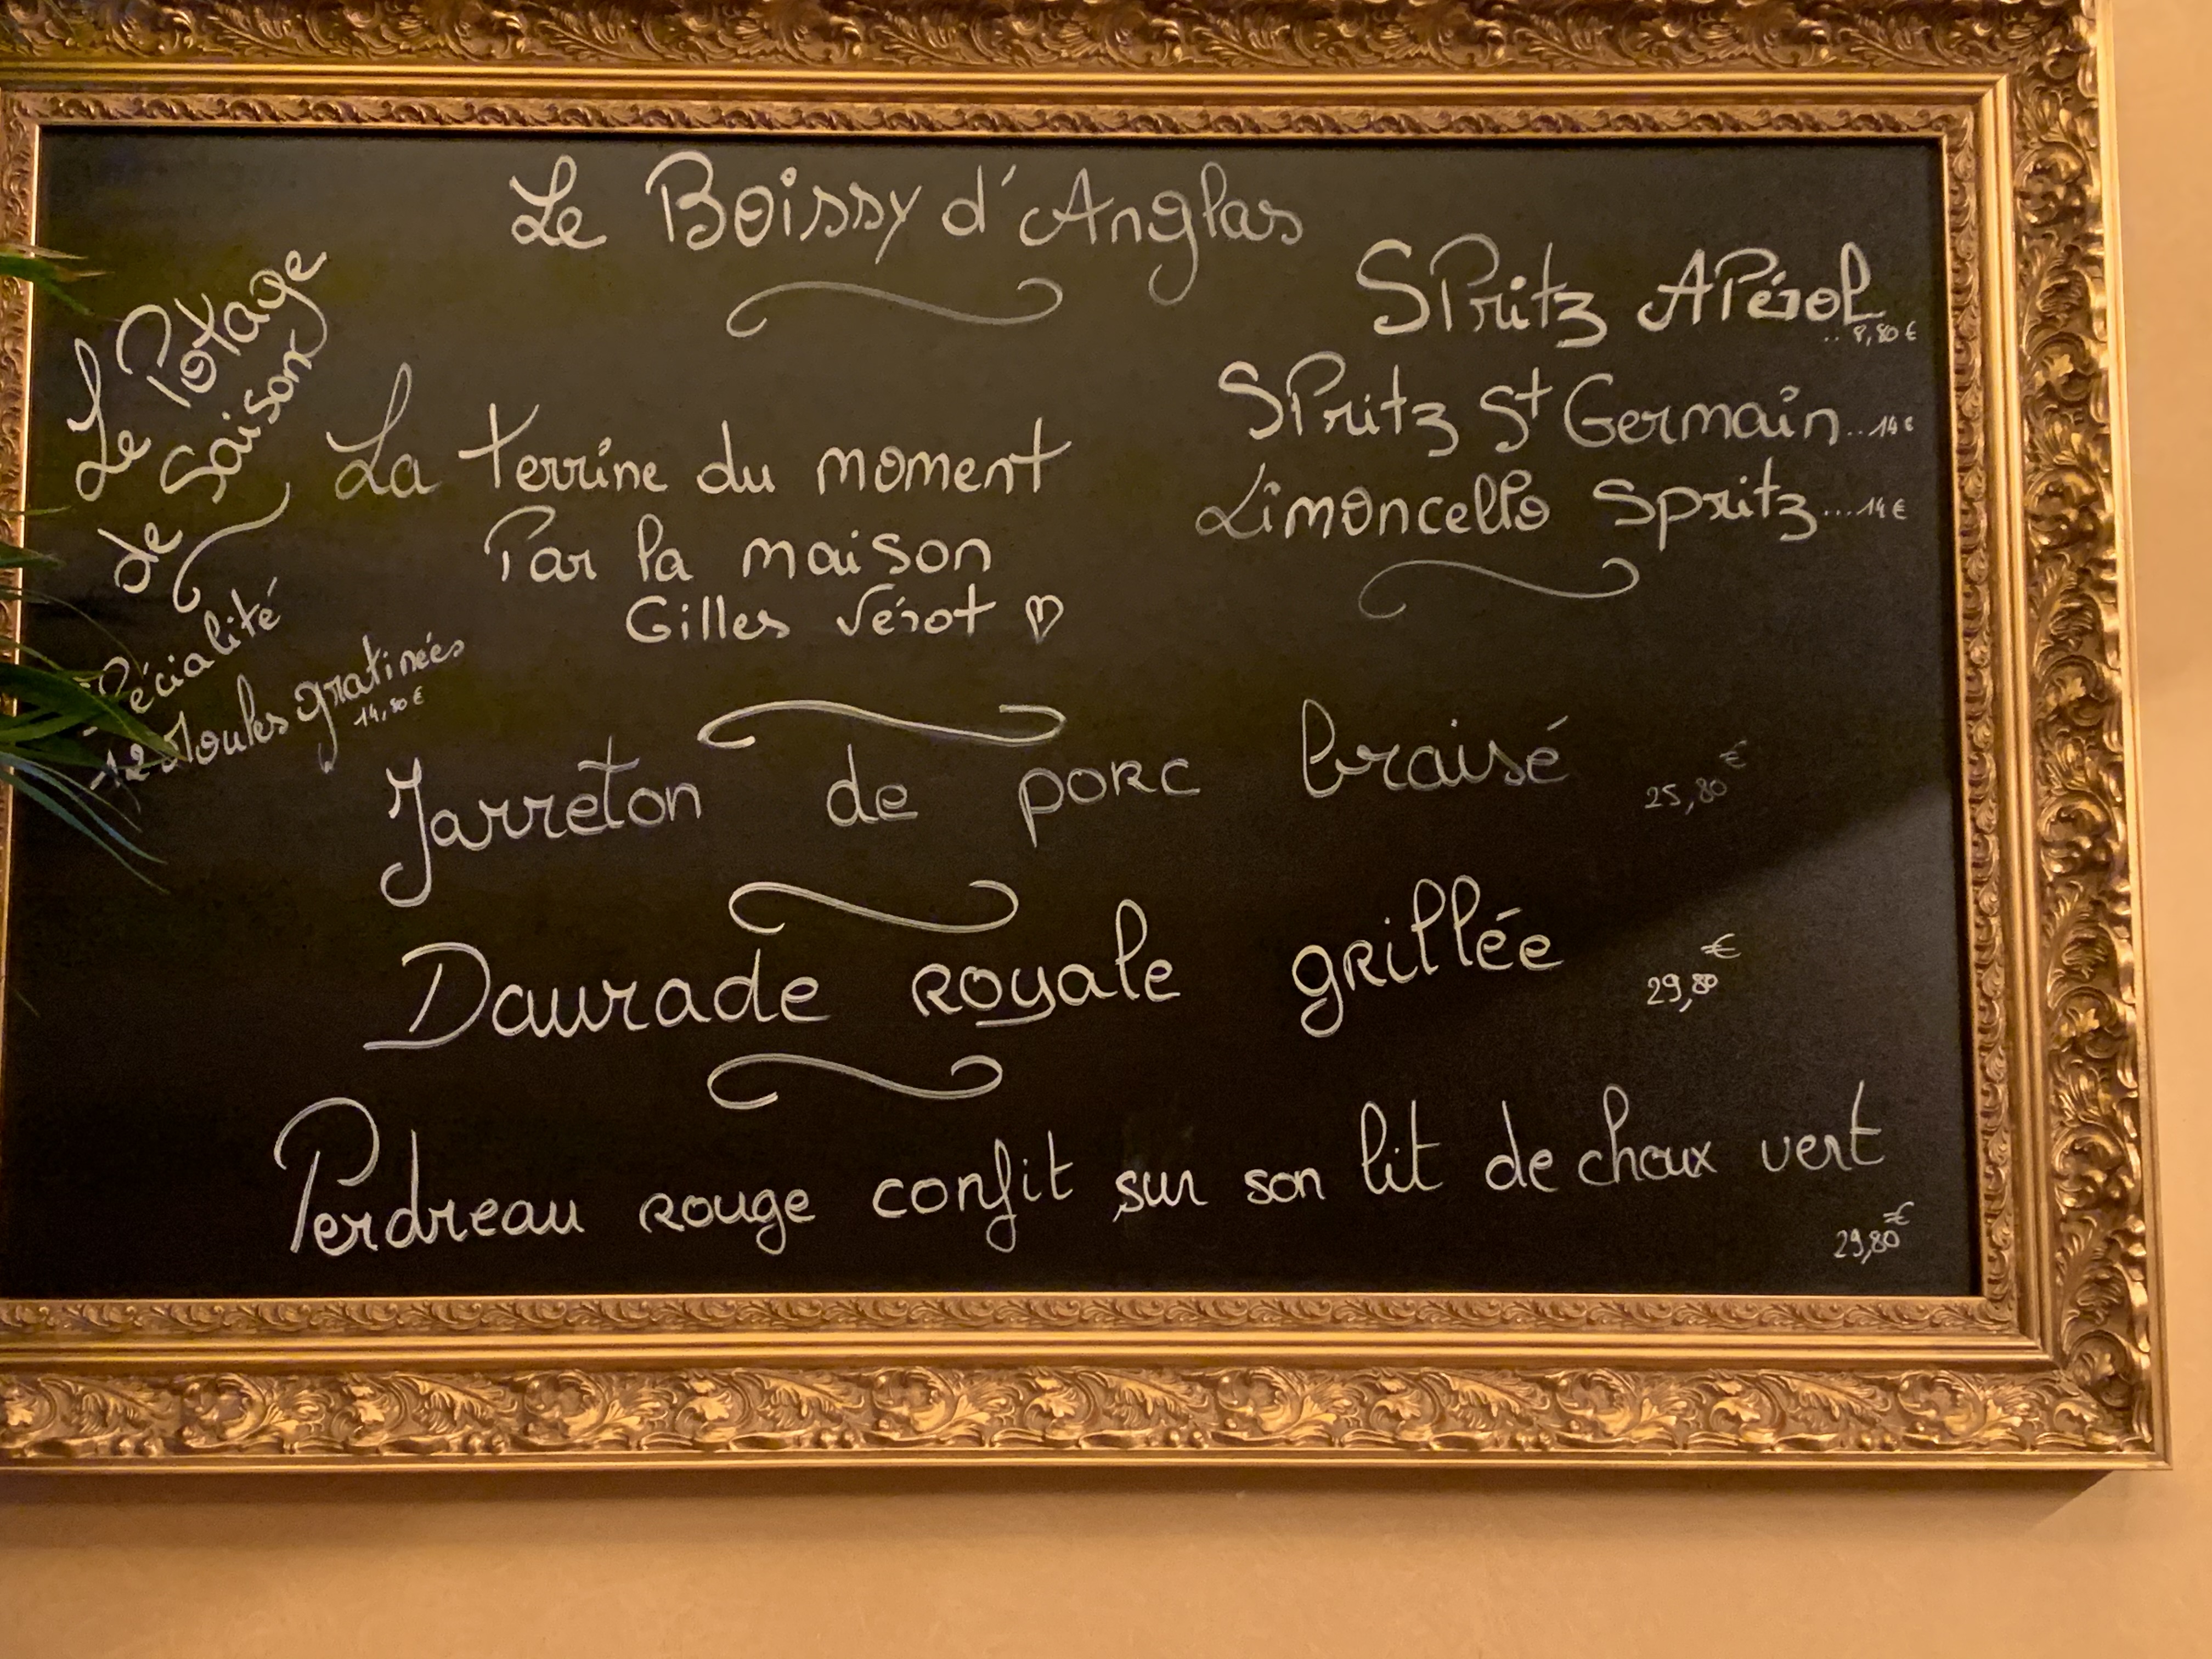 Le Boissy d'Anglas
Le Potage
de Saison
Spécialité
12 Moules gratinées
14,80 €
SPritz APérol
..8,80 €
SPritz St Germain..14€
Limoncello Spritz....14€
La terrine du moment
Par la maison
Gilles Vérot ♡
Jarreton de porc braisé 25,80€
Daurade royale grillée 29,80€
Perdreau rouge confit sur son lit de choux vert
29,80€